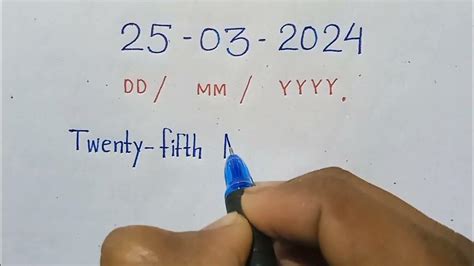 25-03-2024
DD / MM / YYYY.
Twenty-fifth